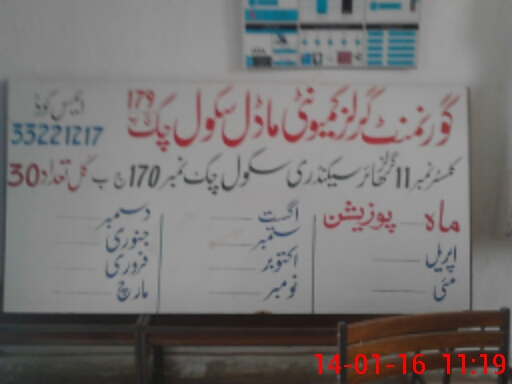 گورنمنٹ گرلز کمیونٹی ماڈل سکول چک 179 ج ب
ایمس کوڈ
33221217
کلسٹر نمبر 11 گرلز ھائر سیکنڈری سکول چک نمبر 170 ج ب کل تعداد 30
ماہ پوزیشن
اپریل
مئی
اگست
ستمبر
اکتوبر
نومبر
دسمبر
جنوری
فروری
مارچ
14-01-16 11:19